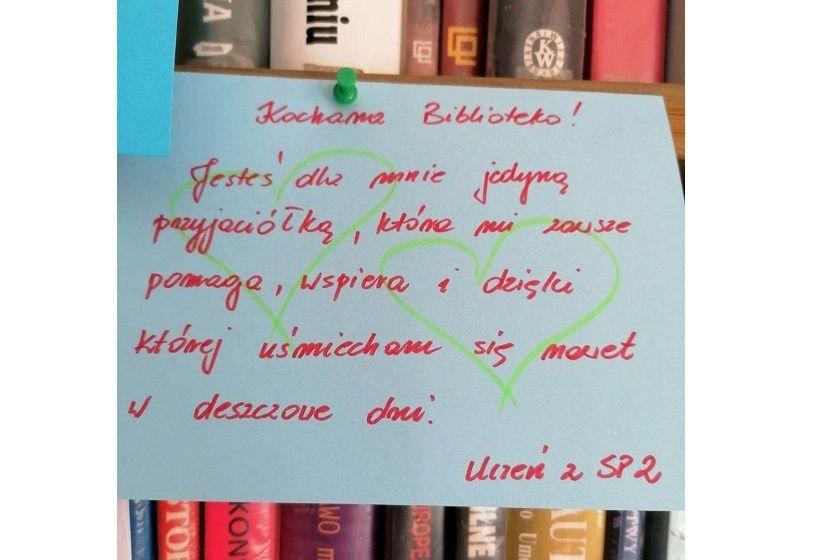 A
znak
niu
KW
Kochana Biblioteko!
Jesteś dla mnie jedyną
przyjaciółką, która mi zawsze
pomaga, wspiera i dzięki
której uśmiecham się nawet
w deszczowe dni.
Uczeń z SP2
KON
WO
ROPE
LNE
AUT
Um
TWY